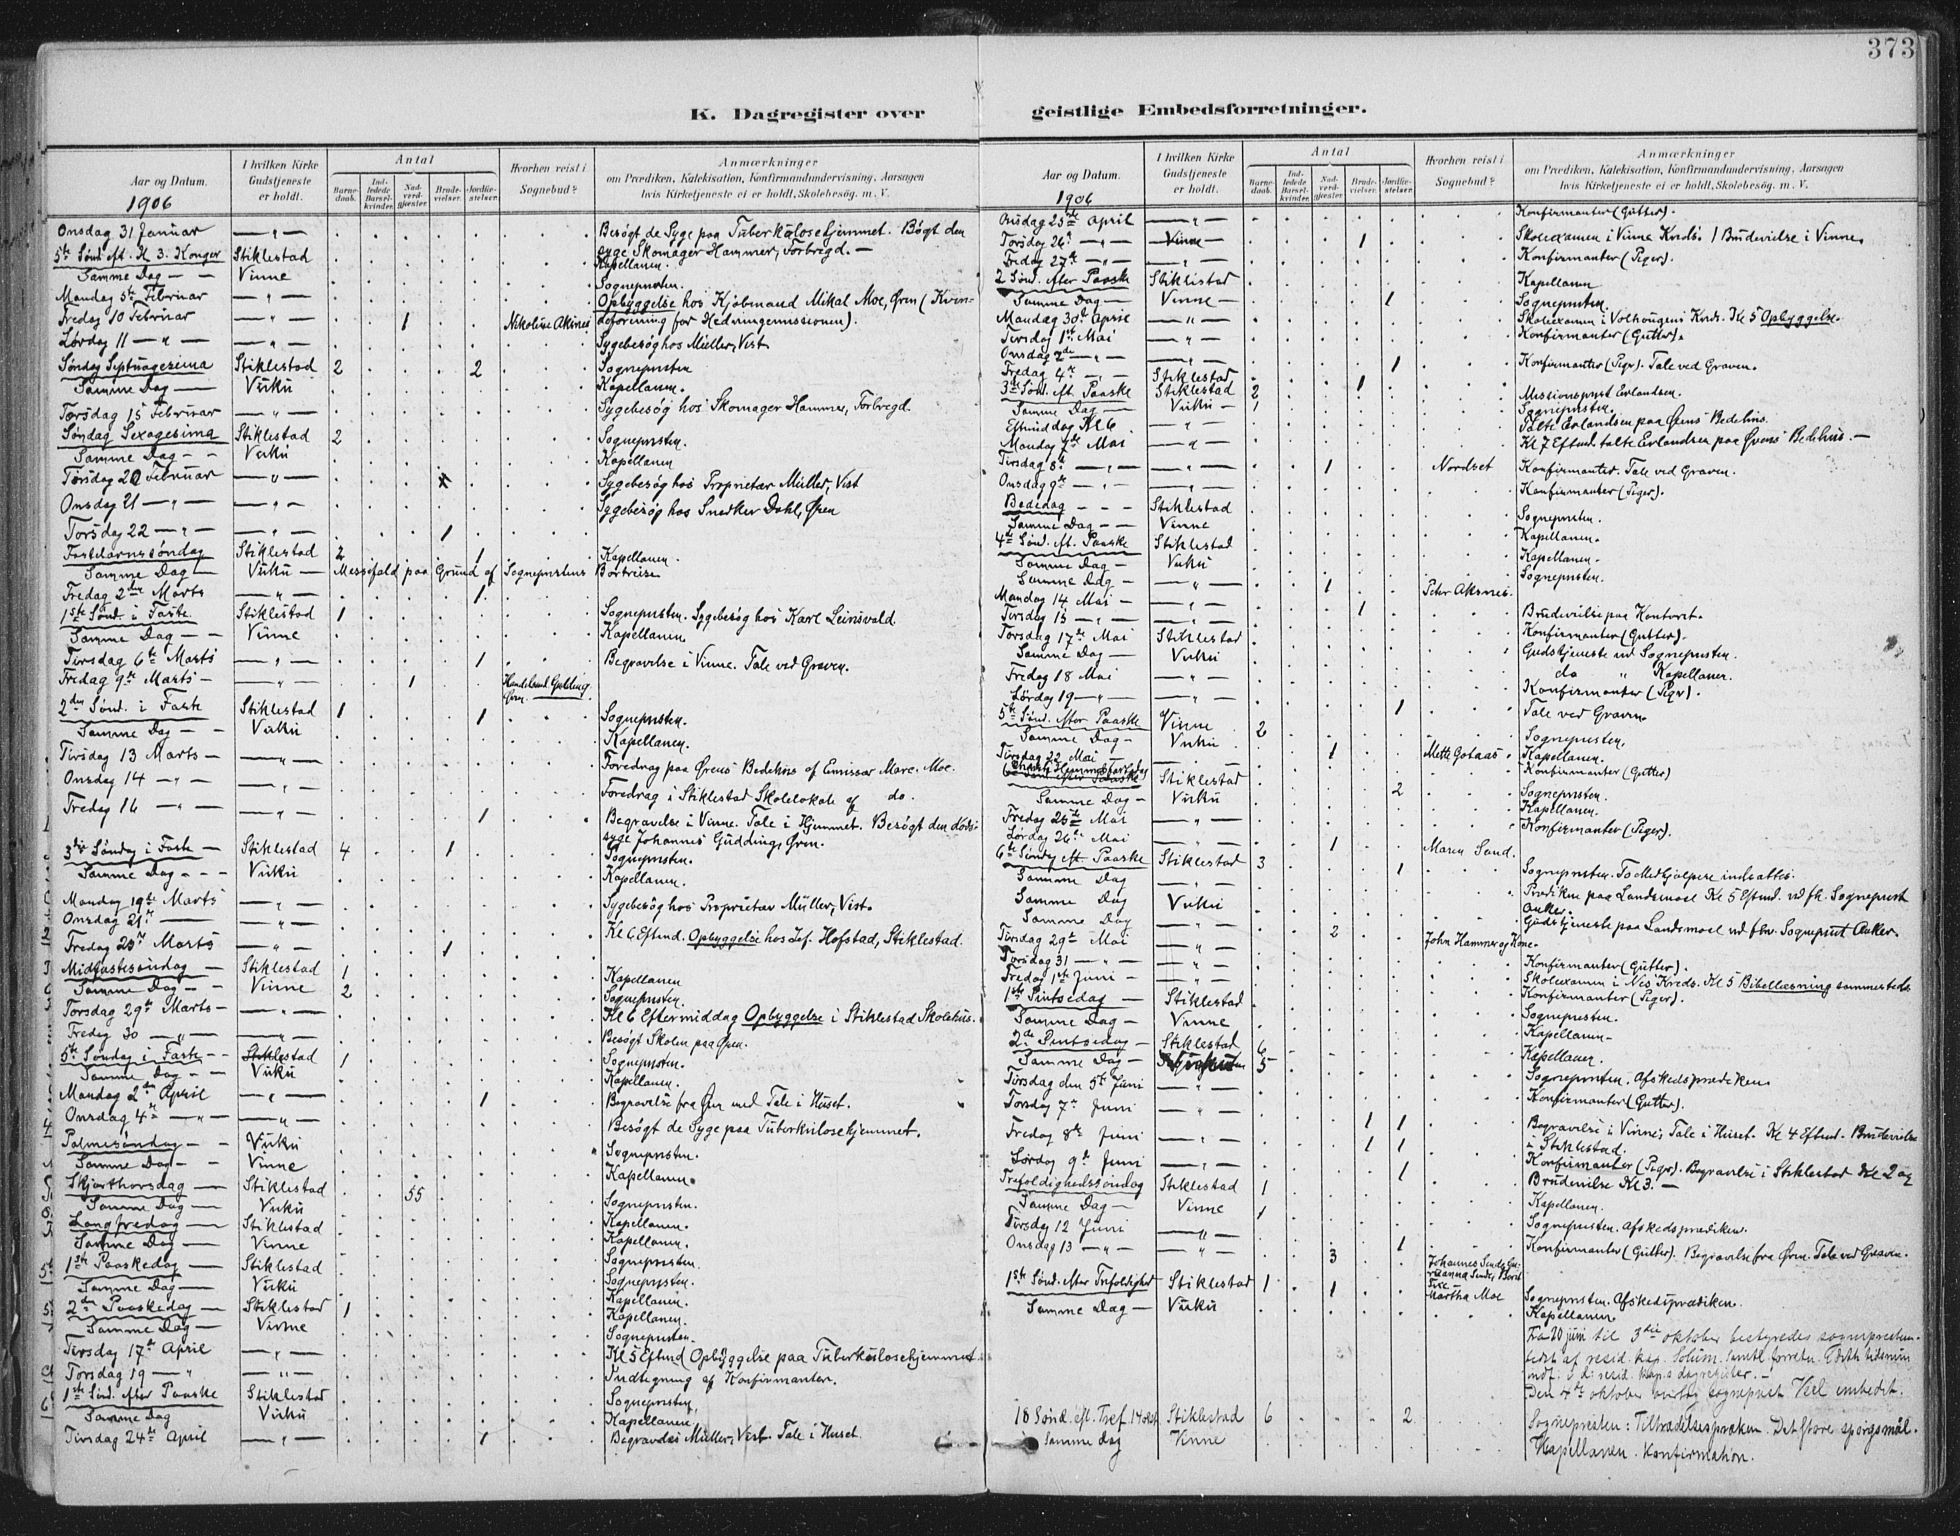 373
K. Dagregister over
Aar og Datum.
I hvilken Kirke Gudstjeneste er holdt.
Antal
Barnedaab.
Indledede Barselkvinder.
Nadverdgjester.
Brudevielser.
Jordfæstelser.
Hvorhen reist i Sognebud?
Anmærkninger
om Prædiken, Katekisation, Konfirmandundervisning, Aarsagen
hvis Kirketjeneste ei er holdt, Skolebesøg. m. V.
1906
Onsdag 31 Januar — " — Besøgt de Syge paa Tuberkulosehjemmet. Bøgt den
syge Skomager Hammer, Forbregd. —
5te Sønd. eft. H. 3. Konger Stiklestad Kapellanen.
Samme Dag — — Vinne Sognepresten.
Mandag 5te Februar — " — Opbyggelse hos Kjøbmand Mikal Moe, Øren (Kvin-
Fredag 10 Februar — " — 1 Nikoline Aksnes deforening for Hedningemissionen).
Lørdag 11 — " — — " — Sygebesøg hos Müller, Vest.
Søndag Septuagesima Stiklestad 2 2 Sognepresten
Samme Dag — Vuku Kapellanen.
Torsdag 15 Februar — " — Sygebesøg hos Skomager Hammer, Forbregd.
Søndag Sexagesima Stiklestad 2 Sognepresten.
Samme Dag - - Vuku Kapellanen
Tirsdag 20 Februar — " — Sygebesøg hos Proprietær Müller, Vest
Onsdag 21 — " — — " — Sygebesøg hos Snedker Dahl, Øren
Torsdag 22 — " — — " — 1
Fastelavnssøndag Stiklestad 2 1 Kapellanen.
Samme Dag — Vuku — Messefald paa Grund af Sogneprestens Bortreise
Fredag 2den Marts — " — 1
1ste Sønd. i Faste Stiklestad 1 Sognepresten. Sygebesøg hos Karl Leinsvald
Samme Dag - - Vinne Kapellanen
Tirsdag 6te Marts — " — 1 Begravelse i Vinne. Tale ved Graven.
Fredag 9de Marts - — " — 1 Øren.
2den Sønd. i Faste Stiklestad 1 1 Sognepresten.
Samme Dag - - Vuku Kapellanen.
Tirsdag 13 Marts - — " — Foredrag paa Ørens Bedehus af Emissær Marc. Moe.
Onsdag 14 — " — — " — Foredrag i Stiklestad Skolelokale af do.
Fredag 16 — " — — " — 1 Begravelse i Vinne. Tale i Hjemmet. Besøgt den døds-
syge Johannes Gudding, Øren.
3die Søndag i Faste — Stiklestad 4 1 Sognepresten.
Samme Dag - - - Vuku Kapellanen.
Mandag 19de Marts — " — Sygebesøg hos Proprietær Müller, Vest.
Onsdag 21de — — " — Kl 6 Eftmd. Opbyggelse hos Jof. Hofstad, Stiklestad.
Fredag 23de Marts — " — 1
Midfastesøndag — Stiklestad 1 Kapellanen
Samme Dag - - Vinne 2 Sognepresten.
Torsdag 29de Marts — " — Kl 6 Eftermiddag Opbyggelse i Stiklestad Skolehus.
Fredag 30 — " — — " — Besøgt Skolen paa Øren.
5te Søndag i Faste - - Stiklestad 1 Sognepresten.
Samme Dag - - Vuku Kapellanen.
Mandag 2den April — " — 1 Begravelse fra Øren med Tale i Huset.
Onsdag 4de — " — — " — Besøgt de Syge paa Tuberkulosehjemmet.
Palmesøndag - - Vuku Sognepresten.
Samme Dag - - Vinne Kapellanen.
Skjærthorsdag — Stiklestad 55 Sognepresten.
Samme Dag — Vuku Kapellanen.
Langfredag — Stiklestad Kapellanen.
Samme Dag — Vinne Sognepresten.
1ste Paaskedag — Stiklestad Sognepresten.
Samme Dag — Vuku Kapellanen.
2den Paaskedag — Stiklestad 1 Kapellanen.
Samme Dag — Vinne Sognepresten.
Tirsdag 17de April — " — Kl 5 Eftmd Opbyggelse paa Tuberkulosehjemmet
Torsdag 19 — " — " — Indtegning af Konfirmanter.
1ste Sønd. efter Paaske Stiklestad Sognepresten,
Samme Dag Vuku Kapellanen,
Tirsdag 24de April — " — 1 Begravdes Müller, Vest. Tale i Huset.
geistlige Embedsforretninger.
Aar og Datum.
I hvilken Kirke Gudstjeneste er holdt.
Antal
Barnedaab.
Indledede Barselkvinder.
Nadverdgjester.
Brudevielser.
Jordfæstelser.
Hvorhen reist i Sognebud?
Anmærkninger
om Prædiken, Katekisation, Konfirmandundervisning, Aarsagen
hvis Kirketjeneste ei er holdt, Skolebesøg. m. V.
1906
Onsdag 25de April — " — Konfirmanter (Gutter).
Torsdag 26de — " — Vinne — 1 Skoleexamen i Vinne Kreds. 1 Brudevielse i Vinne.
Fredag 27de — " — — " — Konfirmanter (Piger).
2 Sønd. efter Paaske Stiklestad Kapellanen
Samme Dag — Vinne — 1 Sognepresten.
Mandag 30te April — " — Skoleexamen i Volhaugens Kreds. Kl 5 Opbyggelse.
Tirsdag 1ste Mai — " — Konfirmanter (Gutter).
Onsdag 2de — " — — " — 1 Konfirmanter (Piger). Tale ved Graven.
Fredag 4de — " — Stiklestad 1
3die Sønd. eft. Paaske Stiklestad 2 Missionsprest Erlandsen.
Samme Dag — Vuku — 1 Sognepresten.
Eftmiddag Kl 6 — " — Talte Erlandsen paa Ørens Bedehus.
Mandag 7de Mai — " — Kl 7 Eftmd. talte Erlandsen paa Ørens Bedehus. —
Tirsdag 8de — " — — " — 1 Nordset Konfirmanter. Tale ved Graven.
Onsdag 9de — " — — " — Konfirmanter (Piger).
Bededag - - - Stiklestad Sognepresten.
Samme Dag — Vinne Kapellanen.
4de Sønd. eft. Paaske Stiklestad Kapellanen.
Samme Dag — Vuku Sognepresten.
Samme Dag — — " — 1 Peter Aksnes.
Mandag 14 Mai — — " — 1 Brudevielse paa Kontoret.
Tirsdag 15 — " — — " — Konfirmanter (Gutter).
Torsdag 17de Mai Stiklestad Gudstjeneste ved Sognepresten.
Samme Dag — Vuku do " Kapellanen.
Fredag 18 Mai — " — Konfirmanter (Piger).
Lørdag 19 — " — — " — 1 Tale ved Graven.
5te Sønd. efter Paaske Vinne 2 Sognepresten.
Samme Dag - Vuku Kapellanen.
Tirsdag 22 Mai — " — 1 Mette Gotaas Konfirmanter (Gutter)
Christi Himmelfartsdag Stiklestad 2 Sognepresten.
Samme Dag — Vuku Kapellanen.
Fredag 25de Mai — " — Konfirmanter (Piger).
Lørdag 26de Mai — " — 1 Maren Sand.
6te Søndag eft. Paaske Stiklestad 3 1 Sognepresten. To Medhjælpere indsattes.
Samme Dag — " — Prædiken paa Landsmoel Kl 5 Eftmd. ved fh. Sogneprest
Samme Dag Vuku Anker.
Samme Dag — " — Gudstjeneste paa Landsmoel ved fhv. Sogneprest Anker.
Tirsdag 29de Mai — " — 2 John Hammer og Kone
Torsdag 31 — " — — " — Konfirmanter (Gutter).
Fredag 1ste Juni — " — Skoleexamen i Nes Kreds. Kl 5 Bibellæsning sammesteds
Konfirmanter (Piger).
1ste Pintsedag — Stiklestad Sognepresten.
Samme Dag — Vinne Kapellanen
2den Pintsedag — Stiklestad 6 Kapellanen.
Samme Dag — 5 Sognepresten. Afskedsprædiken
Tirsdag den 5te Juni — " — Konfirmanter (Gutter).
Torsdag 7de Juni — " — 1 1 Begravelse i Vinne; Tale i Huset. Kl 4 Eftmd. Brudevielse
i Stiklestad.
Fredag 8de Juni — " — 1 1 Konfirmanter (Piger). Begravelse i Stiklestad Kl 2 og
Lørdag 9de Juni — " — 1 Brudevielse Kl 3. —
Trefoldighedssøndag Stiklestad 1 Kapellanen.
Samme Dag — Vinne 1 Sognepresten. Afskedsprædiken.
Tirsdag 12 Juni — " — 1 Konfirmanter (Gutter). Begravelse fra Øren. Tale ved Graven.
Onsdag 13 — " — — " — 3
1ste Sønd. efter Trefoldighed Stiklestad 1 1 Martha Moe Sognepresten. Afskedsprædiken.
Samme Dag — Vuku Kapellanen
Fra 20 juni til 3die oktober bestyredes sogneprestem-
bedet af resid. kap. Solum. Samtl. forretn. i dette tidsrum
indf. i d. resid. kap.s dagregister. —
Den 4de oktober overtog sogneprest Veel embedet.
18 Sønd. eft. Tref 14 okt Stiklestad 6 2 Sognepresten: Tiltrædelsespræken. Det store spørgsmål.
Samme dag Vinne Kapellanen. Konfirmation.